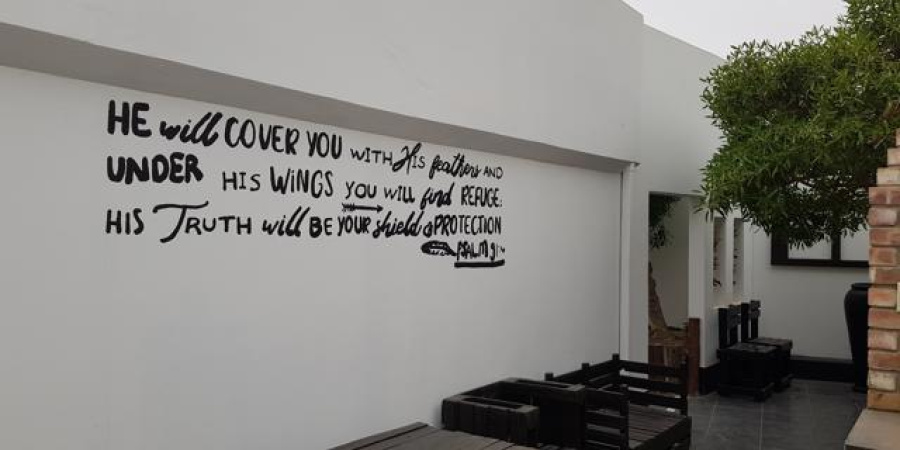 HE will COVER YOU WITH His feathers AND
UNDER HIS WiNGS YOU WILL find REFUGE;
HIS TRUTH will BE YOUR shield & PROTECTION
PSALM 91